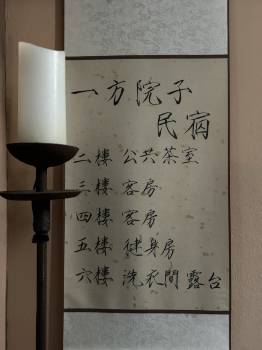 一方院子
民宿
二樓 公共茶室
三樓 客房
四樓 客房
五樓 健身房
六樓 洗衣間 露台